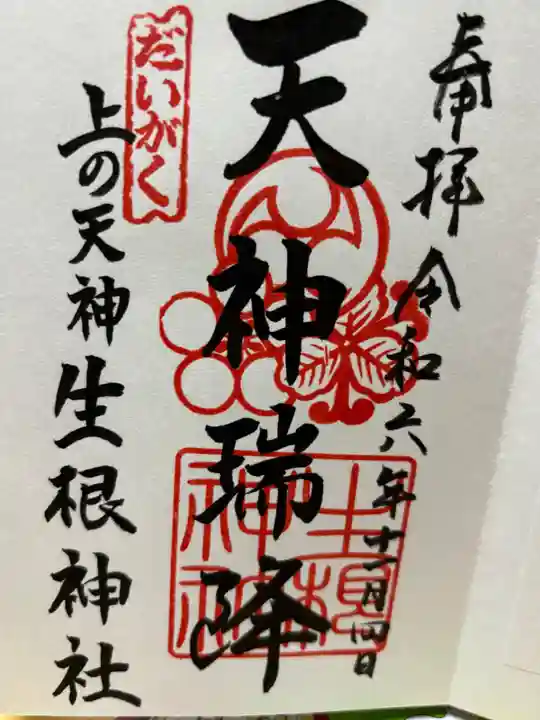 奉拝 令和六年十一月四日
天神瑞降
生根神社
だいがく
上の天神 生根神社